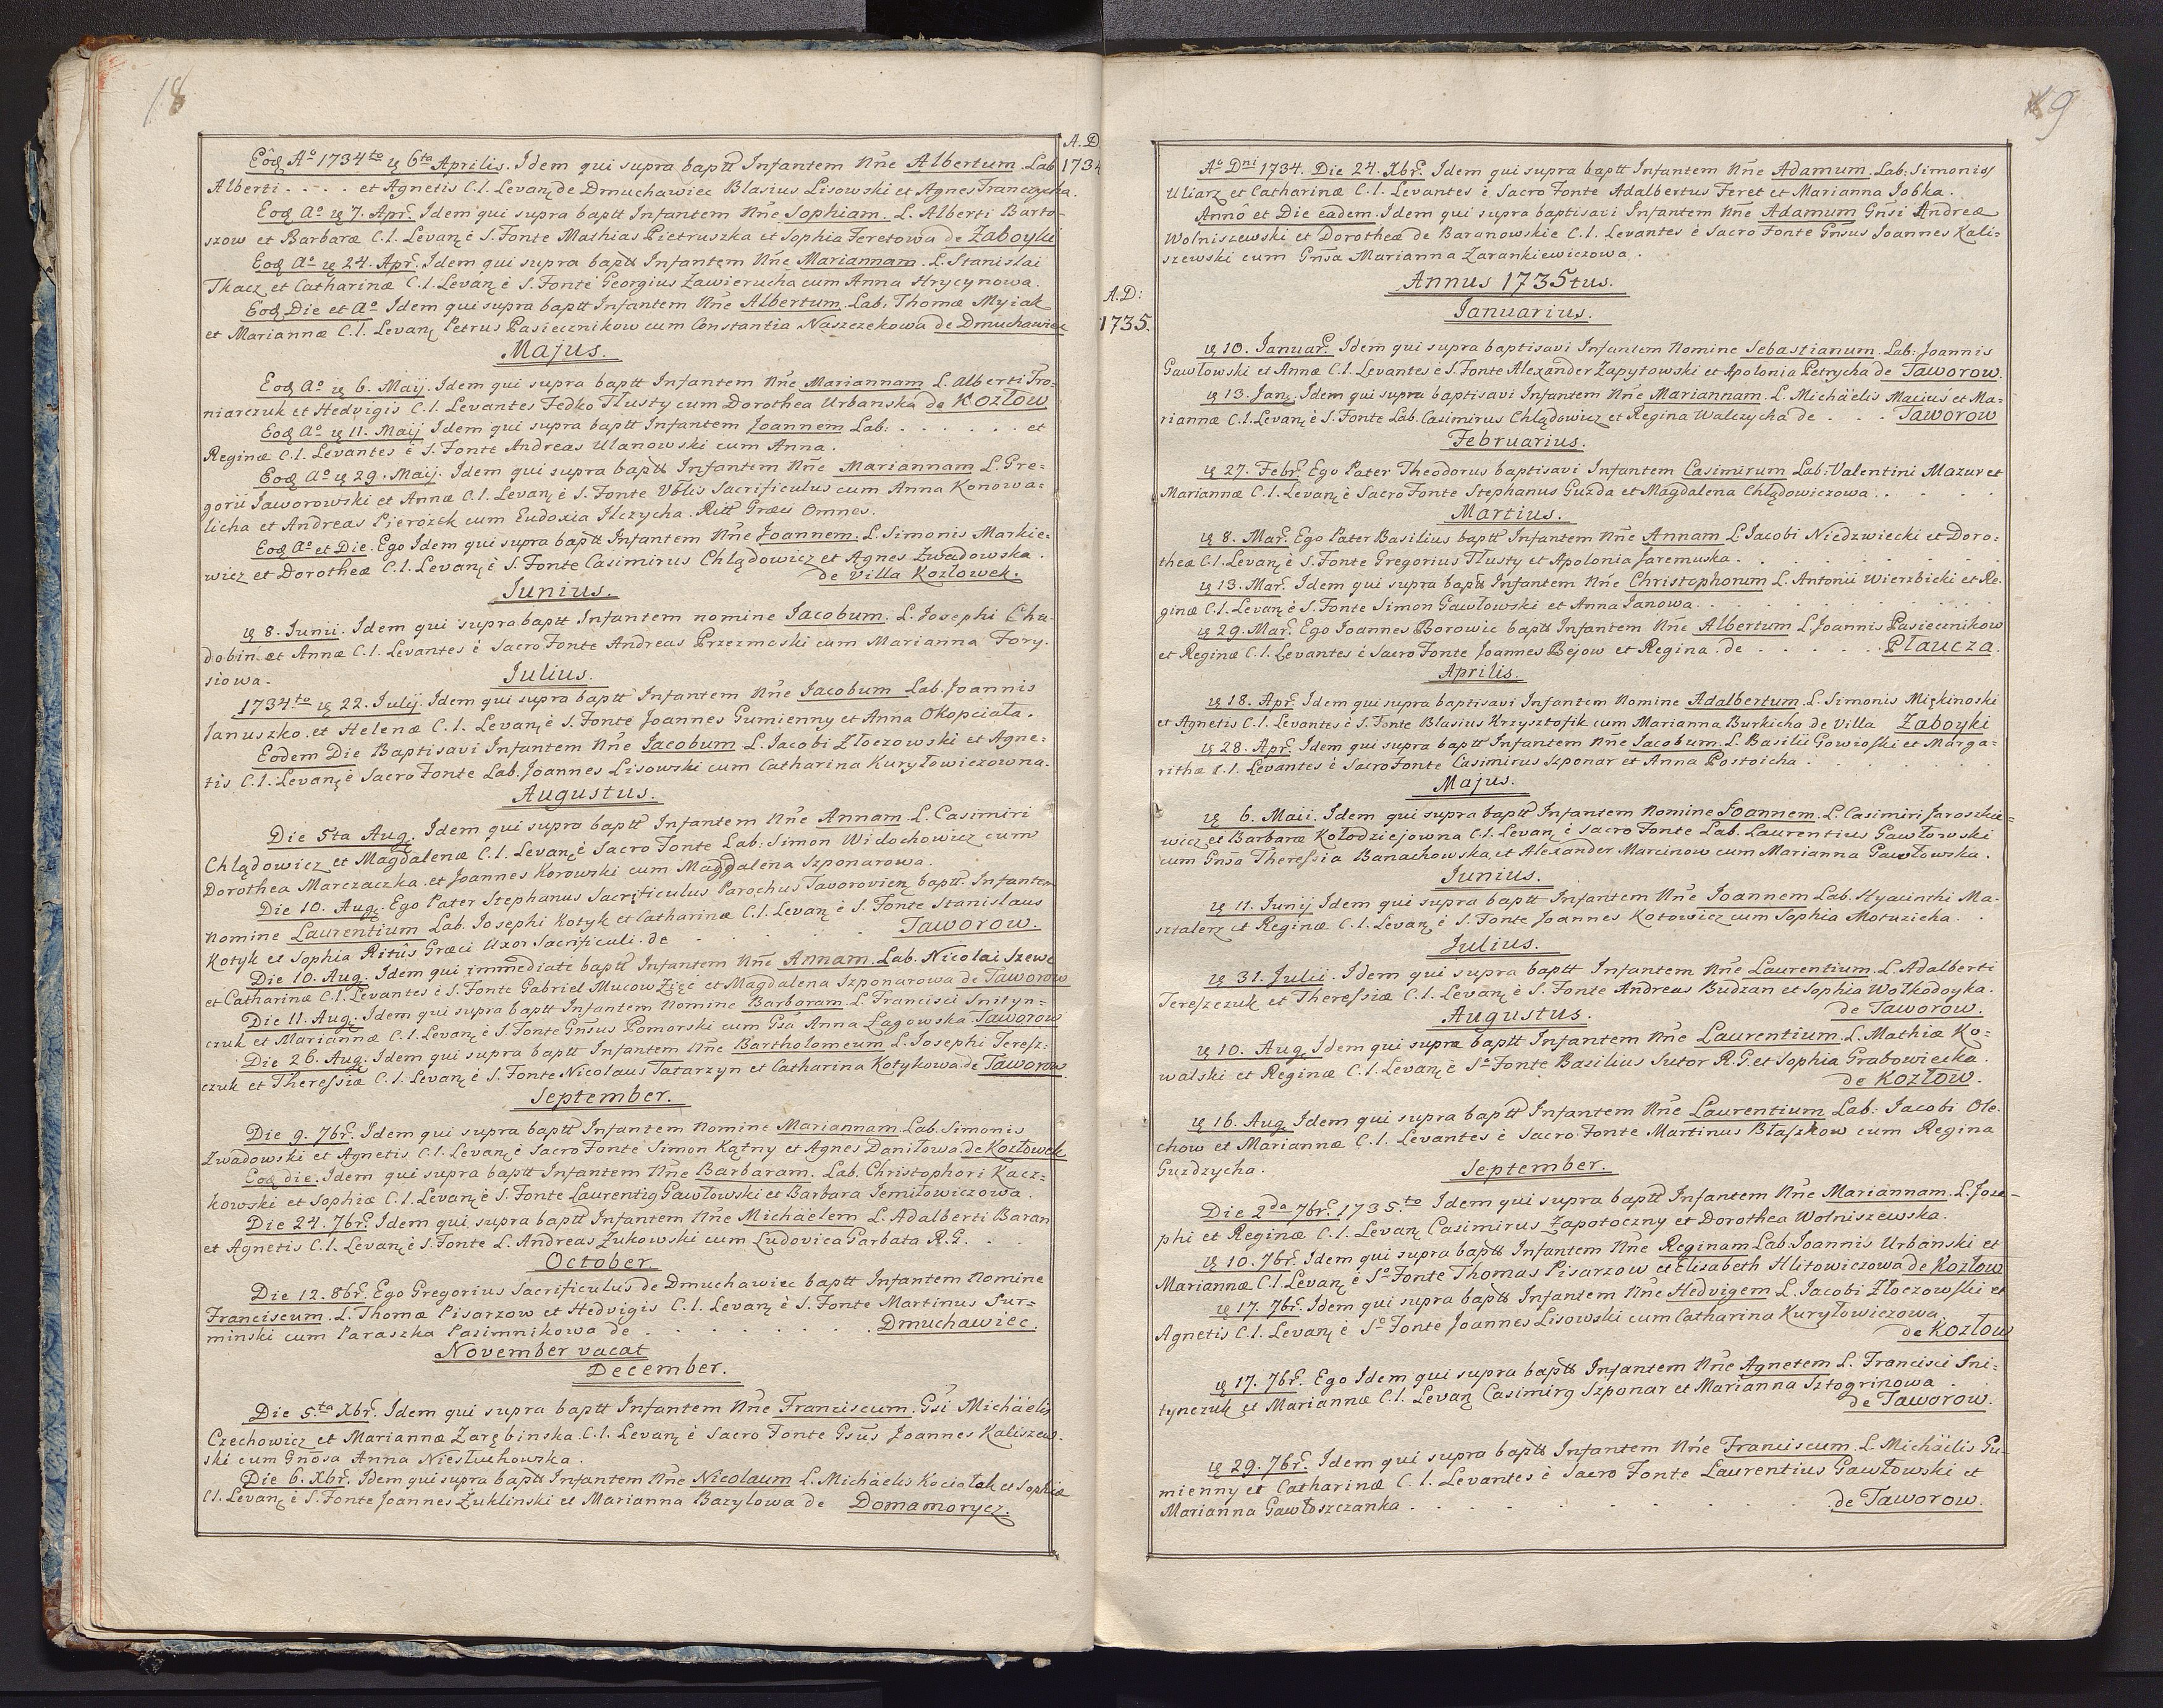 18
A.D
1734
Eôq Aº 1734to ię 6ta Aprilis. Idem qui supra baptt Infantem Nñe Albertum. Lab
Alberti . . . . et Agnetis C.l. Levanę de Dmuchawiec Blasius Lisowski et Agnes Franczycha.
Eoq Aº ię 7. Apr. Idem qui supra baptt Infantem Nñe Sophiam. L. Alberti Barto-
szow et Barbaræ C.l. Levanę è S. Fonte Mathias Pietruszka et Sophia Feretowa de Zaboyki
Eoq Aº ię 24. Apr. Idem qui supra baptt Infantem Nñe Mariannam. L. Stanislai
Tkacz et Catharinæ C.l. Levanę è S. Fonte Georgius Zawierucha cum Anna Hrycynowa.
Eoq Die et Aº Idem qui supra baptt Infantem Nñe Albertum. Lab. Thomæ Myiak
et Mariannæ C.l. Levanę Petrus Pasiecznikow cum Constantia Naszczekowa de Dmuchawiec
Majus.
Eoq Aº ię 6. Maij. Idem qui supra baptt Infantem Nñe Mariannam L. Alberti Tro-
niarczuk et Hedvigis C.l. Levantes Fedko Tłusty cum Dorothea Urbanska de Kozłow
Eoq Aº ię 11. Maij Idem qui supra baptt Infantem Joannem Lab: . . . . . . et
Reginæ C.l. Levantes è S. Fonte Andreas Ulanowski cum Anna.
Eoq Aº ię 29. Maij. Idem qui supra baptt Infantem Nñe Mariannam L. Gre=
gorii Jaworowski et Annæ C.l. Levanę è S. Fonte Vbtis Sacrificulus cum Anna Konowa=
licha et Andreas Pierożek cum Eudoxia Ilczycha. Ritt Græci Omnes.
Eoq Aº et Die. Ego Idem qui supra baptt Infantem Nñe Joannem. L. Simonis Markie=
wicz et Dorotheæ C.l. Levanę è S. Fonte Casimirus Chlądowicz et Agnes Zwadowska.
de Villa Kozłowek.
Iunius.
ię 8. Iunii. Idem qui supra baptt Infantem nomine Iacobum. L. Josephi Chu-
dobin et Annæ C.l. Levantes è Sacro Fonte Andreas Przezmoski cum Marianna Fory-
siowa.
Iulius.
1734to ię 22. Iulij. Idem qui supra baptt Infantem Nñe Iacobum Lab. Joannis
Ianuszko et Helenæ C.l. Levanę è S. Fonte Joannes Gumienny et Anna Okopciata.
Eodem Die Baptisavi Infantem Nñe Iacobum L. Jacobi Złoczowski et Agne=
tis C.l. Levanę è Sacro Fonte Lab. Joannes Lisowski cum Catharina Kuryłowiczowna.
Augustus.
Die 5ta Aug. Idem qui supra baptt Infantem Nñe Annam. L. Casimiri
Chlądowicz et Magdalenæ C.l. Levanę è Sacro Fonte Lab: Simon Widochowicz cum
Dorothea Marczaczka et Joannes Korowski cum Magdalena Szponarowa.
Die 10. Aug. Ego Pater Stephanus Sacrificulus Parochus Tavorovien baptt. Infantem
nomine Laurentium Lab. Josephi Kotyk et Catharinæ C.l. Levanę è S. Fonte Stanislaus
Kotyk et Sophia Ritûs Græci Uxor Sacrificuli de . . . . . Taworow.
Die 10. Aug. Idem qui immediate baptt Infantem Nñe Annam. Lab. Nicolai Szewc
et Catharinæ C.l. Levantes è S. Fonte Gabriel Mucow Zięć et Magdalena Szponarowa de Taworow
Die 11. Aug. Idem qui supra baptt Infantem Nomine Barbaram. L. Francisci Snityn=
czuk et Mariannæ C.l. Levanę è S. Fonte Gñsus Pomorski cum Gsa Anna Łagowska. Taworow
Die 26. Aug. Idem qui supra baptt Infantem Nñe Bartholomeum L. Josephi Teresz=
czuk et Theressiæ C.l. Levanę è S. Fonte Nicolaus Tatarzyn et Catharina Kotykowa de Taworow
September.
Die 9. 7br. Idem qui supra baptt Infantem Nomine Mariannam. Lab. Simonis
Zwadowski et Agnetis C.l. Levanę è Sacro Fonte Simon Kątny et Agnes Daniłowa. de Kozłowek
Eoq die. Idem qui supra baptt Infantem Nñe Barbaram. Lab. Christophori Kacz=
kowski et Sophiæ C.l. Levanę è S. Fonte Laurentig Gawłowski et Barbara Jemiłowiczowa.
Die 24. 7br. Idem qui supra baptt Infantem Nñe Michäelem L. Adalberti Baran
et Agnetis C.l. Levanę è S. Fonte L. Andreas Zukowski cum Ludovica Garbata R.G. . .
October.
Die 12. 8br. Ego Gregorius Sacrificulus de Dmuchawiec baptt Infantem Nomine
Franciscum. L. Thomæ Pisarzow et Hedvigis C.l. Levanę è S. Fonte Martinus Sur=
minski cum Paraszka Pasimnikowa de . . . . . . . . Dmuchawiec.
November vacat
December.
Die 5.ta Xbr. Idem qui supra baptt Infantem Nñe Franciscum. Gsi Michäelis
Czechowicz et Mariannæ Zarębinska. C.l. Levanę è Sacro Fonte Gsûs Joannes Kaliszew-
ski cum Gñosa Anna Niesłuchowska.
Die 6. Xbr. Idem qui supra baptt Infantem Nñe Nicolaum L. Michäelis Kociołek et Sophiæ
Cl. Levanę è S. Fonte Joannes Zuklinski et Marianna Bazylowa de Domamorycz.
19
A.D:
1735.
Aº Dni 1734. Die 24. Xbr. Idem qui supra baptt Infantem Nñe Adamum. Lab: Simonis
Uliarz et Catharinæ C.l. Levantes è Sacro Fonte Adalbertus Feret et Marianna Jobka.
Annô et Die eadem. Idem qui supra baptisavi Infantem Nñe Adamum Gñsi Andreæ
Wolniszewski et Dorotheæ de Baranowskie C.l. Levantes è Sacro Fonte Gñsus Joannes Kali=
szewski cum Gñsa Marianna Zarankiewiczowa.
Annus 1735tus.
Ianuarius.
ię 10. Ianuar. Idem qui supra baptisavi Infantem Nomine Sebastianum. Lab: Joannis
Gawłowski et Annæ C.l. Levantes è S. Fonte Alexander Zapytowski et Apolonia Petrycha de Taworow.
ię 13. Jan. Idem qui supra baptisavi Infantem Nñe Mariannam. L. Michäelis Maciuś et Ma=
riannæ C.l. Levanę è S. Fonte Lab. Casimirus Chlądowicz et Regina Walczycha de . . . Taworow
Februarius.
ię 27. Febr. Ego Pater Theodorus baptisavi Infantem Casimirum Lab: Valentini Mazur et
Mariannæ C.l. Levanę è Sacro Fonte Stephanus Guzda et Magdalena Chlądowiczowa . . . . .
Martius.
ię 8. Mar. Ego Pater Basilius baptt Infantem Nñe Annam L. Jacobi Niedzwiecki et Doro=
theæ C.l. Levanę è S. Fonte Gregorius Tłusty et Apolonia Jaremuska. . . . . . .
ię 13. Mar. Idem qui supra baptt Infantem Nñe Christophorum L. Antonii Wierzbicki et Re-
ginæ C.l. Levanę è S. Fonte Simon Gawłowski et Anna Janowa. . . . . . . .
ię 29. Mar. Ego Joannes Borowic baptt Infantem Nñe Albertum L. Joannis Pasiecznikow
et Reginæ C.l. Levantes è Sacro Fonte Joannes Bejow et Regina. de . . . . . . Płaucza.
Aprilis.
ię 18. Apr. Idem qui supra baptisavi Infantem Nomine Adalbertum. L. Simonis Miękinoski
et Agnetis C.l. Levantes è S. Fonte Blasius Krzysztofik cum Marianna Burkicha de Villa Zaboyki
ię 28. Apr. Idem qui supra baptt Infantem Nñe Jacobum. L. Basilii Gowioski et Marga=
rithæ C.l. Levantes è Sacro Fonte Casimirus Szponar et Anna Postoicha . . . . .
Majus.
ię 6. Maii. Idem qui supra baptt Infantem Nomine Joannem. L. Casimiri Jaroszkie=
wicz et Barbaræ Kołodziejowna C.l. Levanę è Sacro Fonte Lab. Laurentius Gawłowski
cum Gñsa Theressia Banachowska, et Alexander Marcinow cum Marianna Gawłowska.
Iunius.
ię 11. Iunij Idem qui supra baptt Infantem Nñe Ioannem Lab. Hyacinthi Ma-
sztalerz et Reginæ C.l. Levanę è S. Fonte Joannes Kotowicz cum Sophia Motuzicha. . .
Julius.
ię 31. Julii. Idem qui supra baptt Infantem Nñe Laurentium. L. Adalberti
Tereszczuk et Theressiæ C.l. Levanę è S. Fonte Andreas Budzan et Sophia Wołkodoyka.
de Taworow.
Augustus.
ię 10. Aug. Idem qui supra baptt Infantem Nñe Laurentium. L. Mathiæ Ko=
walski et Reginæ C.l. Levanę è Sº Fonte Basilius Sutor R.G. et Sophia Grabowiecka.
de Kozłow.
ię 16. Aug. Idem qui supra baptt Infantem Nñe Laurentium Lab. Iacobi Ole-
chow et Mariannæ C.l. Levantes è Sacro Fonte Martinus Błaszkow cum Regina
Guzdzycha.
September.
Die 2da 7br. 1735.to Idem qui supra baptt Infantem Nñe Mariannam. L. Jose-
phi et Reginæ C.l. Levanę Casimirus Zapotoczny et Dorothea Wolniszewska.
ię 10. 7br. Idem qui supra baptt Infantem Nñe Reginam Lab. Joannis Urbanski et
Mariannæ C.l. Levanę è Sº Fonte Thomas Pisarzow et Elisabeth Hlitowiczowa de Kozłow
ię 17. 7br. Idem qui supra baptt Infantem Nñe Hedvigem L. Jacobi Złoczowski et
Agnetis C.l. Levanę è Sº Fonte Joannes Lisowski cum Catharina Kuryłowiczowa.
de Kozłow
ię 17. 7br. Ego Idem qui supra baptt Infantem Nñe Agnetem L. Francisci Sni=
tynczuk et Mariannæ C.l. Levanę Casimirg Szponar et Marianna Sztogrinowa.
de Taworow.
ię 29. 7br. Idem qui supra baptt Infantem Nñe Franciscum. L. Michäelis Gu-
mienny et Catharinæ C.l. Levantes è Sacro Fonte Laurentius Gawłowski et
Marianna Gawłoszczanka . . . . . . . . . . de Taworow.